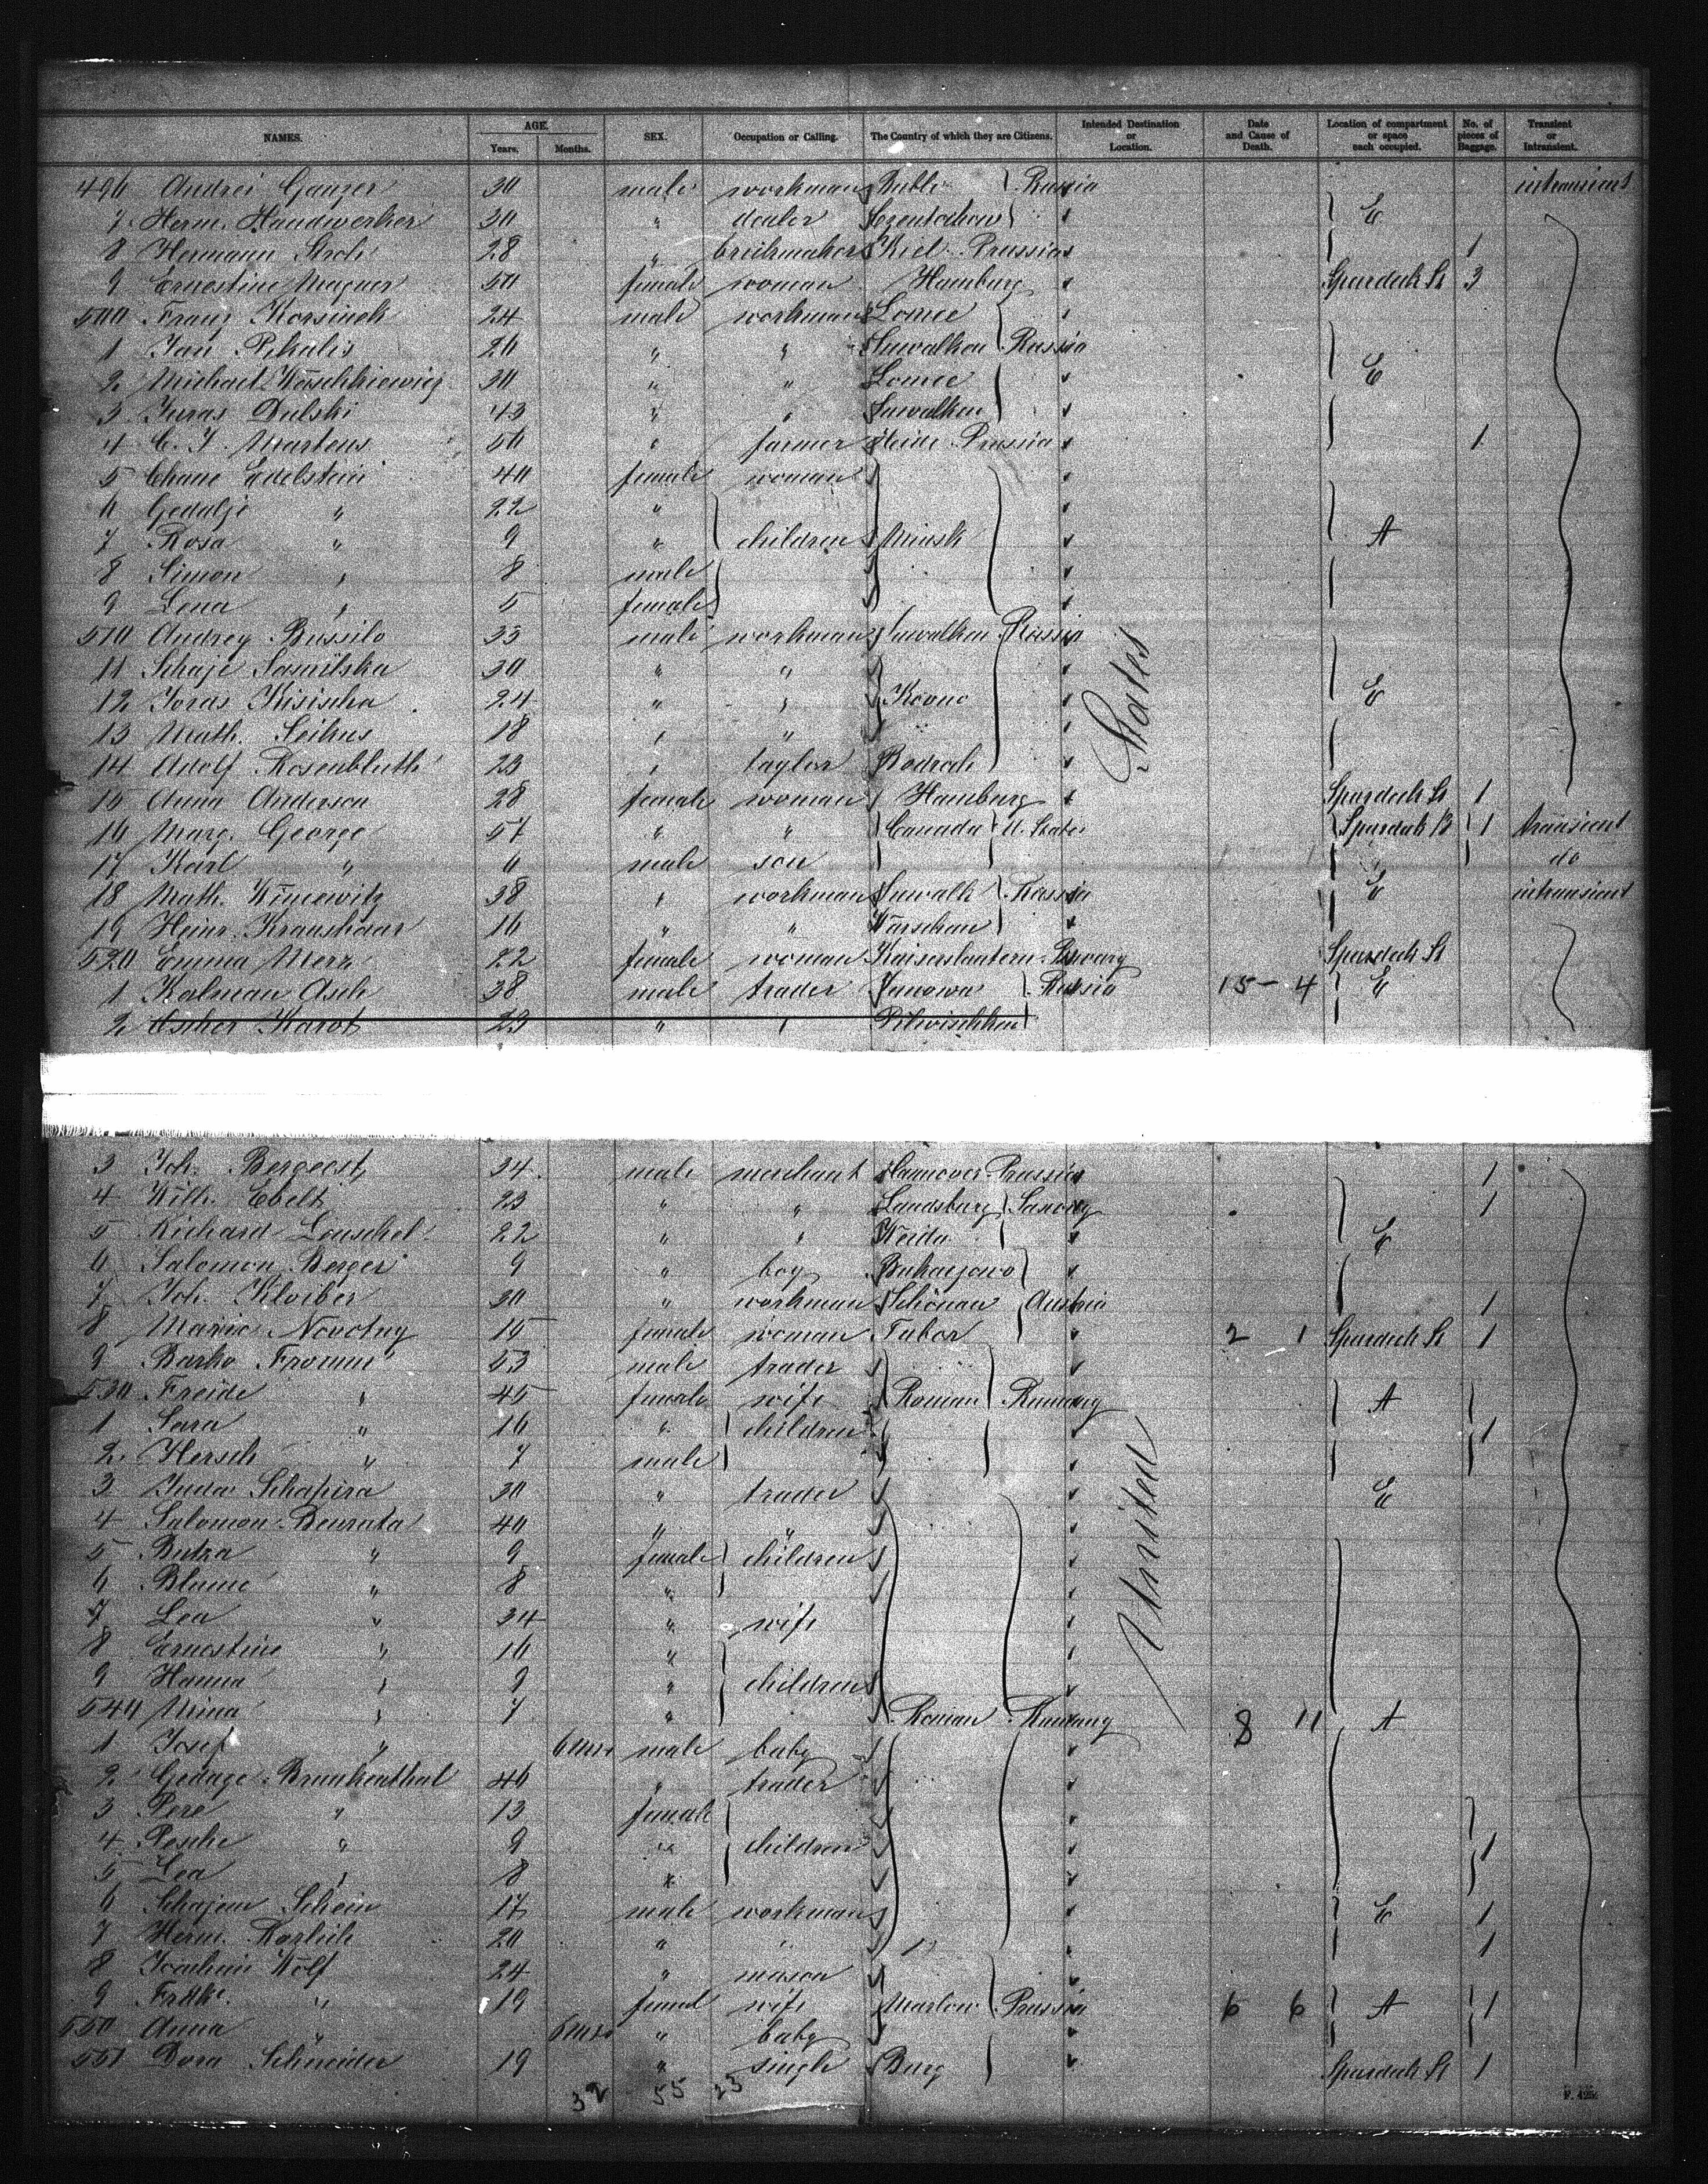 NAMES. AGE. Years. Months. SEX. Occupation or Calling. The Country of which they are Citizens. Intended Destination or Location. Date and Cause of Death. Location of compartment or space each occupied. No. of pieces of Baggage. Transient or Intransient.
496 Andrei Ganzer 30 male workman Russia intransient
7 Herm. Handwerker 30 " dealer E
8 Hermann Stroh 28 " Kiel Prussia 1
9 Ernestine Wagner 50 female woman Hamburg Spardeck St 3
500 Franz Korsinek 24 male workman Lomce
1 Jan Pikalis 26 " " Suwalken Russia
2 Michael 30 " " Lomce E
3 Juras Dulski 43 " " Suwalken
4 C. J. Martens 56 " farmer Heide Prussia 1
5 Chane Edelstein 40 female woman
6 Gedalje " 22 "
7 Rosa " 9 " children Minsk A
8 Simon " 8 male
9 Lena " 5 female
510 Andrey Bussilo 33 male workman Suwalken Russia
11 Schaje 30 " "
12 Joras Kisischa 24 " " Kovno E
13 Math. Seikus 18 " "
14 Adolf Rosenbluth 23 " taylor
15 Anna Anderson 28 female woman Hamburg Spardeck St 1
16 Marg. George 57 " " Canada U. States Spardeck B 1 transient
17 Karl " 6 male son do
18 Math. 38 " workman Suwalk Russia E intransient
19 Heinr. Kraushaar 16 " " Warschau
520 Emma Merz 22 female woman Kaiserslautern Spardeck St
1 Kalman Asch 38 male trader Janowa Russia 15 - 4 E
2 Ascher Karob 23 " " Pilwischken
States
3 Joh. Bergeest 34 male merchant Hannover Prussia 1
4 Wilh. Ebelt 23 " " Landsburg Saxony 1
5 Richard Leuschel 22 " " Weida E
6 Salomon Berger 9 " boy
7 Joh. Kloiber 30 " workman Schönau Austria 1
8 Marie Novotny 15 female woman Tabor 2 1 Spardeck St 1
9 Barko Fromm 53 male trader
530 Freide " 45 female wife Roman A
1 Sara " 16 " children 1
2 Hersch " 7 male
3 Juda Schapira 30 " trader E
4 Salomon 40 " "
5 " 9 female children
6 Blume " 8 "
7 Lea " 34 " wife
8 Ernestine " 16 "
9 Hanna " 9 " children
540 Mina " 7 " Roman 8 11 A
1 Josef " 6 mos male baby
2 46 " trader
3 Pere " 13 female
4 Pesche " 9 " children 1
5 Lea " 8 "
6 Schajem Schein 17 male workman E 1
7 Herm. 20 " " 1
8 Joachim Wolf 24 " mason
9 " 19 femal wife Marlow Prussia 6 6 A 1
550 Anna " 6 mos " baby
551 Dora Schneider 19 " single Burg Spardeck St 1
United
32 55 23